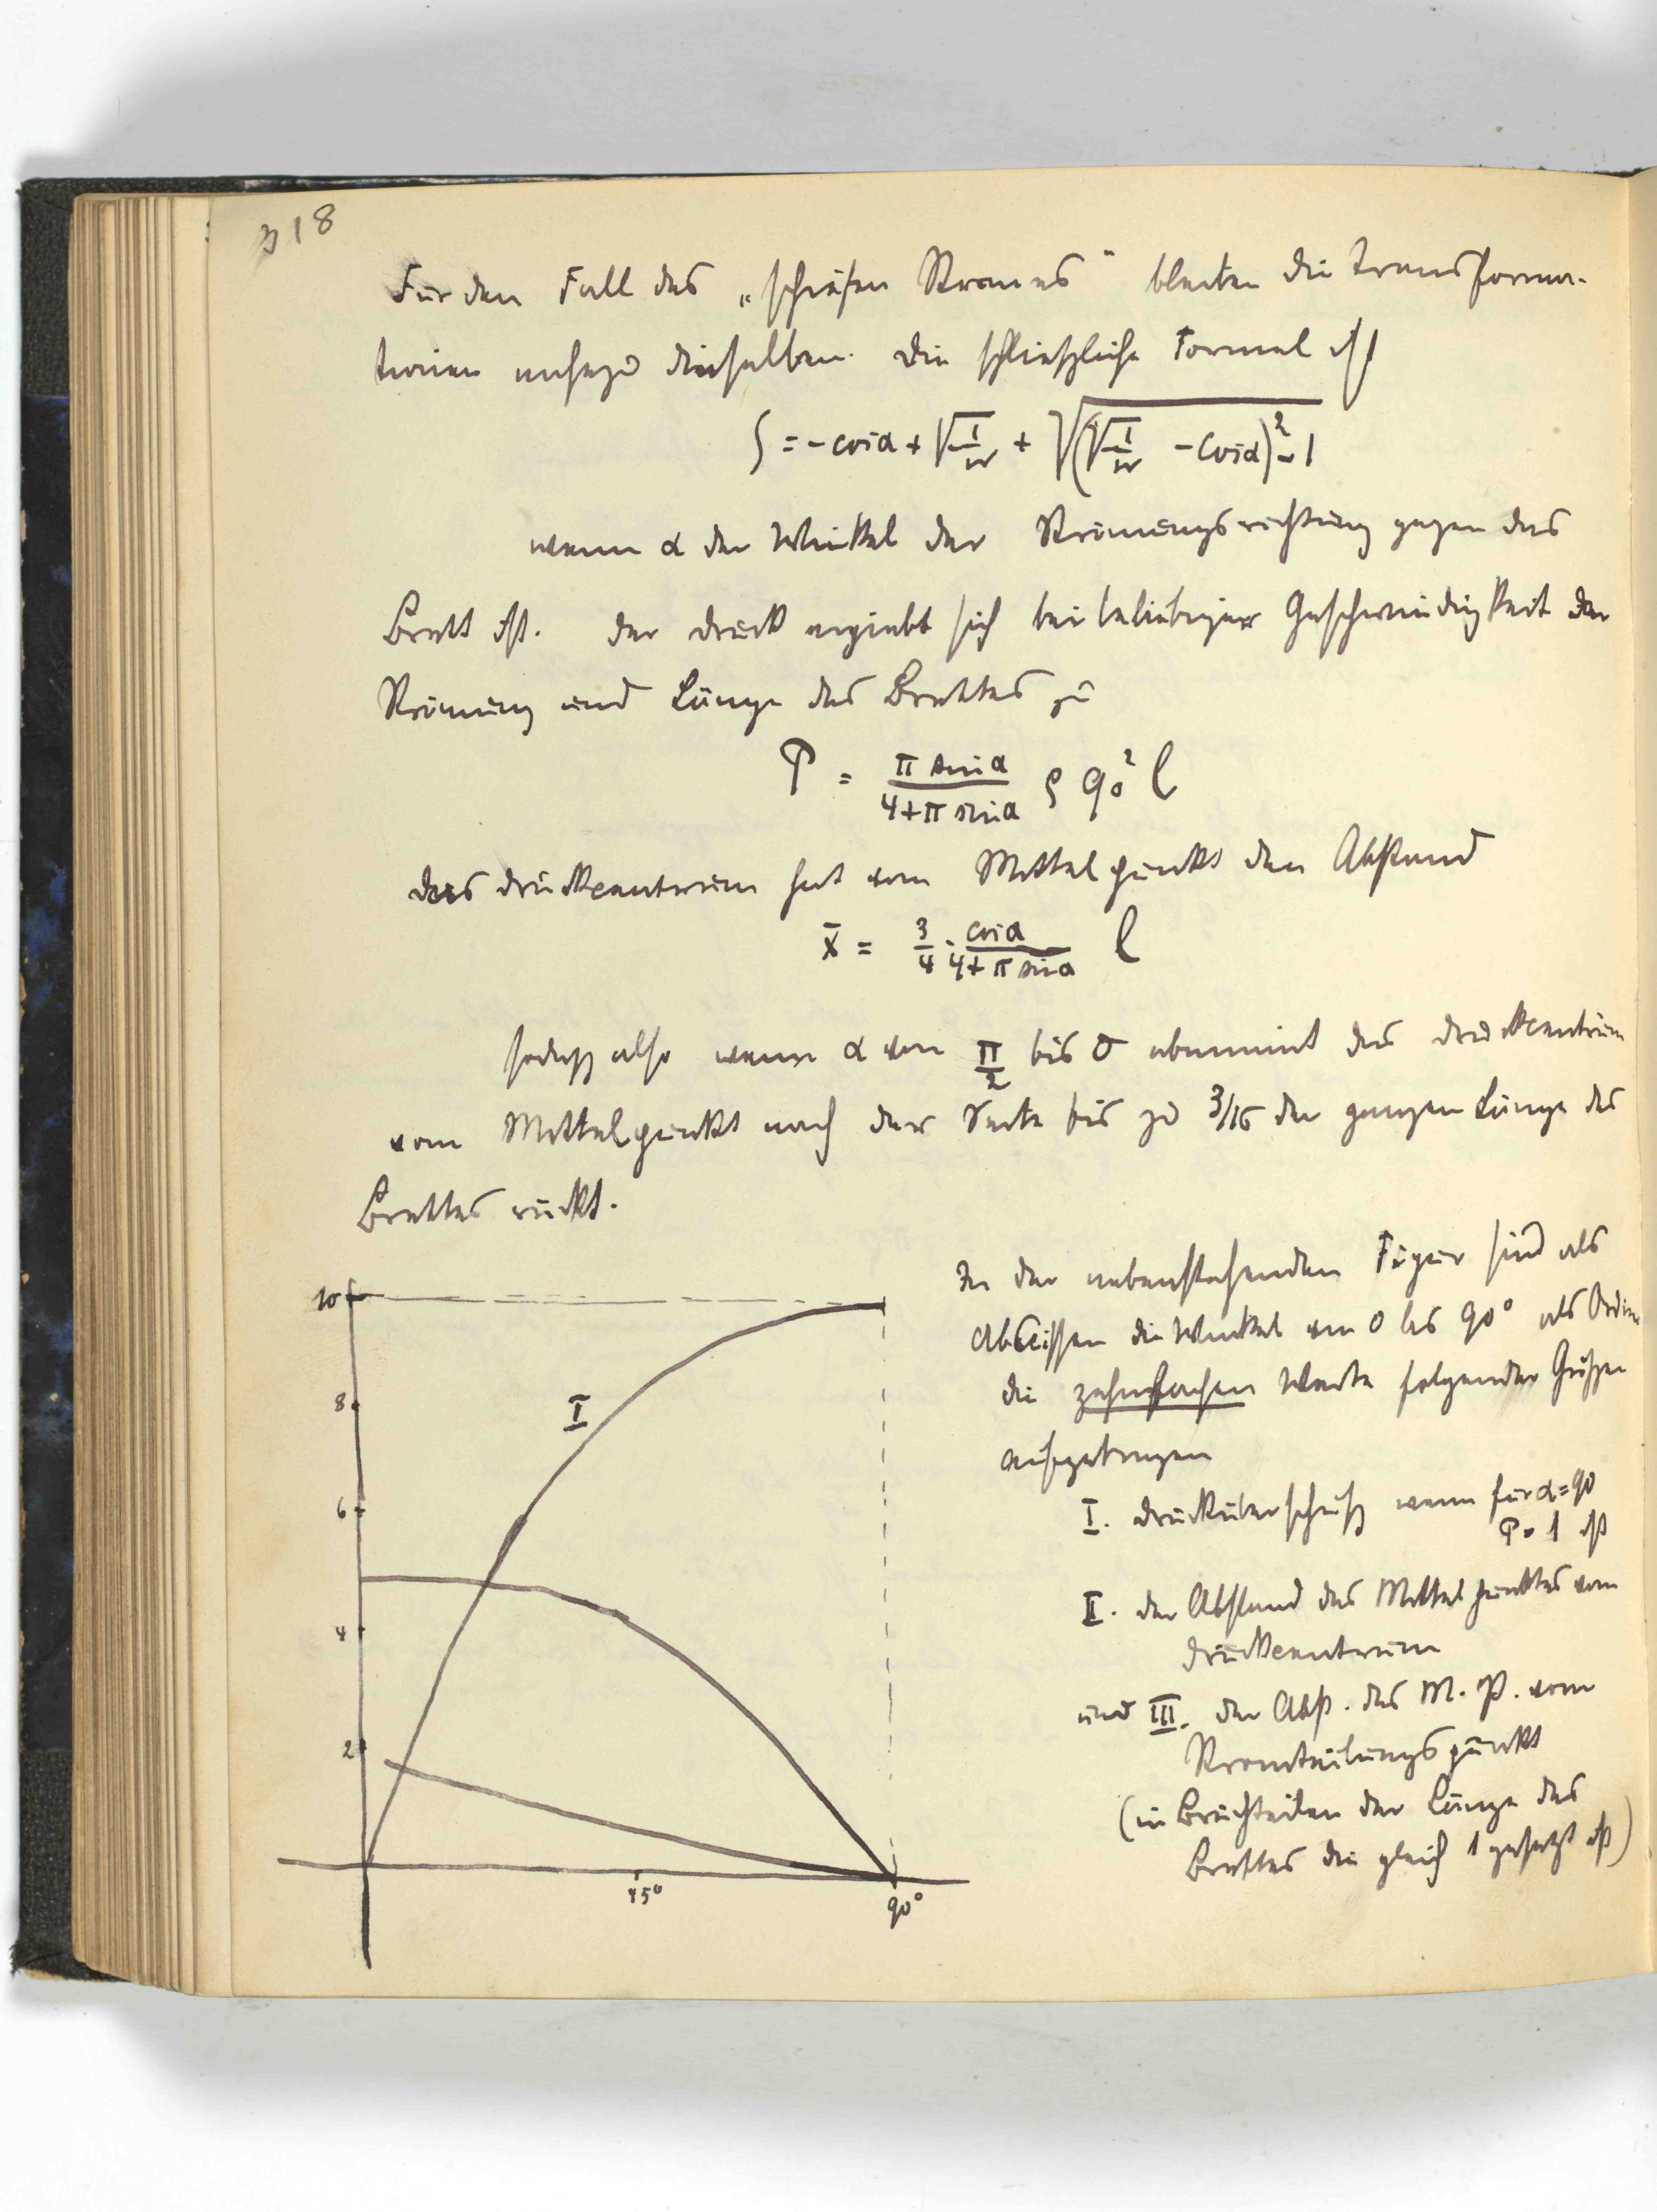 318
Für den Fall des „schiefen Stromes“ bleiben die Transforma-
tionen nahezu dieselben. Die schlieszliche Formel ist
ζ = -cos α + √(1/w) + √((√(1/w) - cos α)² - 1)
wenn α der Winkel der Strömungsrichtung gegen das
Brett ist. Der Druck ergiebt sich bei beliebiger Geschwindigkeit der
Strömung und Länge des Brettes zu
P = π sin α / (4+π sin α) ρ q₀² l
Das Druckcentrum hat vom Mittelpunkt den Abstand
x̄ = 3/4 · cos α / (4+π sin α) l
sodasz also wenn α von π/2 bis 0 abnimmt das Druckcentrum
vom Mittelpunkt nach der Seite bis zu 3/16 der ganzen Länge des
Brettes rückt.
In der nebenstehenden Figur sind als
Abscissen die Winkel von 0 bis 90° als Ordin
die zehnfachen Werte folgender Gröszen
aufgetragen
I. Drucküberschusz wenn für α = 90
P = 1 ist
II. der Abstand des Mittelpunktes vom
Druckcentrum
und III. der Abst. des M. P. vom
Stromteilungspunkt
(in Bruchteilen der Länge des
Brettes die gleich 1 gesetzt ist)
10
8
6
4
2
I
45°
90°